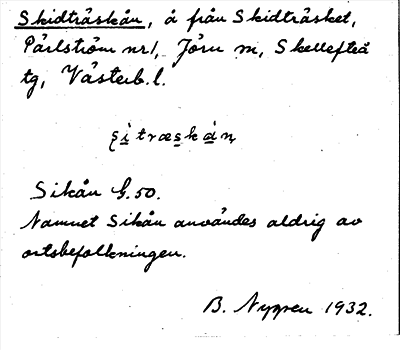 Skidträskån, å från Skidträsket,
Pärlström nr 1, Jörn sn, Skellefteå
tg, Västerb. l.
ʂi̲træs̲ká̲n̥
Sikån G. 50.
Namnet Sikån användes aldrig av
ortsbefolkningen.
B. Nygren 1932.